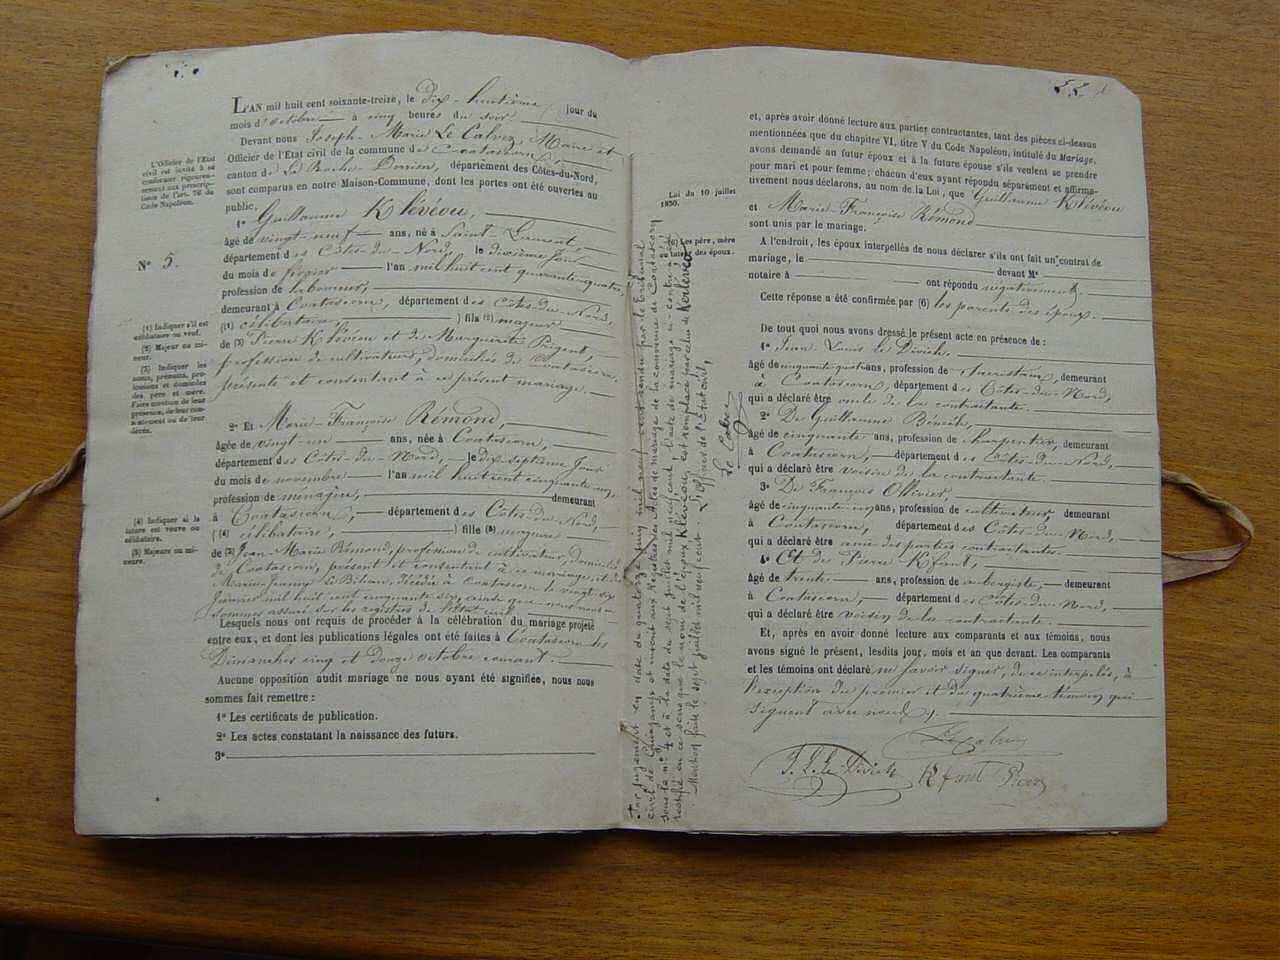 L'AN mil huit cent soixante-treize, le Dix-huitième jour du
mois d'octobre à cinq heures du soir
Devant nous Joseph-Marie Le Calvez, Maire et
Officier de l'Etat civil de la commune de Coatascorn,
canton de La Roche Derrien, département des Côtes-du-Nord,
sont comparus en notre Maison-Commune, dont les portes ont été ouvertes au
public,
1° Guillaume K lévéou,
âgé de vingt-neuf ans, né à Saint-Laurent,
département des Côtes-du-Nord le dixième jour
du mois de février l'an mil huit cent quarante-quatre,
profession de laboureur,
demeurant à Coatascorn, département des Côtes-du-Nord,
((1) célibataire, ) fils (2) majeur
de (3) Pierre K lévéou et de Marguerite Prigent,
profession de cultivateurs, domiciliés de Coatascorn,
présents et consentant à ce présent mariage
2° Et Marie-Françoise Rémond,
âgée de vingt-un ans, née à Coatascorn,
département des Côtes-du-Nord, le dix-septième jour
du mois de novembre l'an mil huit cent cinquante-un,
profession de ménagère, demeurant
à Coatascorn, département des Côtes-du-Nord,
((4) célibataire, ) fille (5) majeure
de (3) Jean-Marie Rémond, profession de cultivateur, domicilié
de Coatascorn, présent et consentant à ce mariage, et de
Marie-Jeanne Le Bihan, décédée à Coatascorn le vingt six
Janvier mil huit cent cinquante six, ainsi que nous nous
sommes assuré sur les registres de l'état civil
Lesquels nous ont requis de procéder à la célébration du mariage projeté
entre eux, et dont les publications légales ont été faites à Coatascorn les
Dimanches cinq et douze octobre courant.
Aucune opposition audit mariage ne nous ayant été signifiée, nous nous
sommes fait remettre :
1° Les certificats de publication.
2° Les actes constatant la naissance des futurs.
3°
L'Officier de l'Etat
civil est invité à se
conformer rigoureu-
sement aux prescrip-
tions de l'art. 76 du
Code Napoléon.
N° 5.
(1) Indiquer s'il est
célibataire ou veuf.
(2) Majeur ou mi-
neur.
(3) Indiquer les
noms, prénoms, pro-
fessions et domiciles
des père et mère.
Faire mention de leur
présence, de leur con-
sentement ou de leur
décès.
(4) Indiquer si la
future est veuve ou
célibataire.
(5) Majeure ou mi-
neure.
Par jugement en date du quatorze juin mil neuf cent rendu par le tribunal
civil de Guingamp et inscrit aux Registres des Actes de mariage de la commune de Coatascorn
sous le n° 4 et à la date du sept juillet mil neuf cent, l'acte de mariage ci-contre a été
rectifié en ce sens que le nom de l'époux K lévéou, est remplacé par celui de Kerlévéou
Mention faite le sept juillet mil neuf cent. L'officier de l'Etat civil,
Le Calvez
Loi du 10 juillet
1850.
(6) Les père, mère
ou tuteur des époux.
et, après avoir donné lecture aux parties contractantes, tant des pièces ci-dessus
mentionnées que du chapitre VI, titre V du Code Napoléon, intitulé du Mariage,
avons demandé au futur époux et à la future épouse s'ils veulent se prendre
pour mari et pour femme; chacun d'eux ayant répondu séparément et affirma-
tivement nous déclarons, au nom de la Loi, que Guillaume K lévéou
et Marie-Françoise Rémond
sont unis par le mariage.
A l'endroit, les époux interpellés de nous déclarer s'ils ont fait un contrat de
mariage, le devant Me
notaire à ont répondu négativement
Cette réponse a été confirmée par (6) les parents des époux.
De tout quoi nous avons dressé le présent acte en présence de :
1° Jean-Louis le Divich.
âgé de cinquante-quatre ans, profession de sacristain, demeurant
à Coatascorn, département des Côtes-du-Nord,
qui a déclaré être oncle de la contractante.
2° De Guillaume Bénech,
âgé de cinquante ans, profession de charpentier, demeurant
à Coatascorn, département des Côtes-du-Nord,
qui a déclaré être voisin de la contractante.
3° De François Ollivier,
âgé de cinquante-cinq ans, profession de cultivateur, demeurant
à Coatascorn, département des Côtes-du-Nord,
qui a déclaré être ami des parties contractantes.
4° Et de Pierre K fant,
âgé de trente ans, profession de aubergiste, demeurant
à Coatascorn, département des Côtes-du-Nord,
qui a déclaré être voisin de la contractante.
Et, après en avoir donné lecture aux comparants et aux témoins, nous
avons signé le présent, lesdits jour, mois et an que devant. Les comparants
et les témoins ont déclaré ne savoir signer, de ce interpelés, à
l'exception du premier et du quatrième témoins qui
signent avec nous.
Le Calvez
J. L. Le Divich K fant Pierre